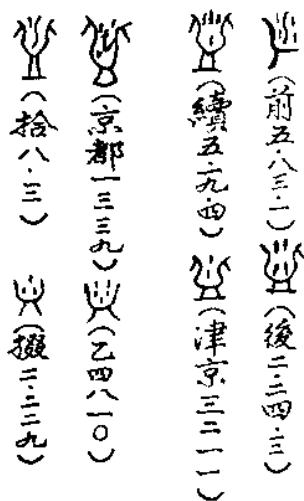 (前五·八三·一)
(後二·二四·三)
(續五·九·四)
(津京三二一一)
(京都一三三九)
(乙四八一〇)
(拾八·三)
(掇二·二二九)